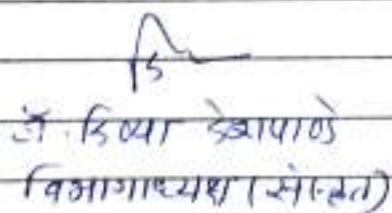 डॉ. दिव्या देशपाण्डे
विभागाध्यक्ष (संस्कृत)